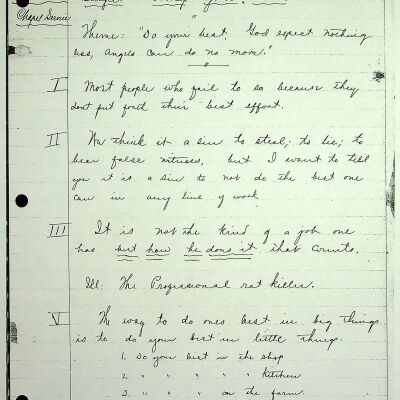 Chapel Service
Theme: "Do your best. God expect nothing
less, Angels can do no more."
I Most people who fail to so because they
dont put forth their best effort.
II We think it a sin to steal; to lie; to
bear false witness, but I want to tell
you it is a sin to not do the best one
can in any line of work.
III It is not the kind of a job one
has but how he does it that counts.
Ill. The Professional rat killer.
V The way to do ones best in big things
is to do your best in little things.
1. Do your best in the shop
2. " " " " " kitchen
3. " " " " on the farm.